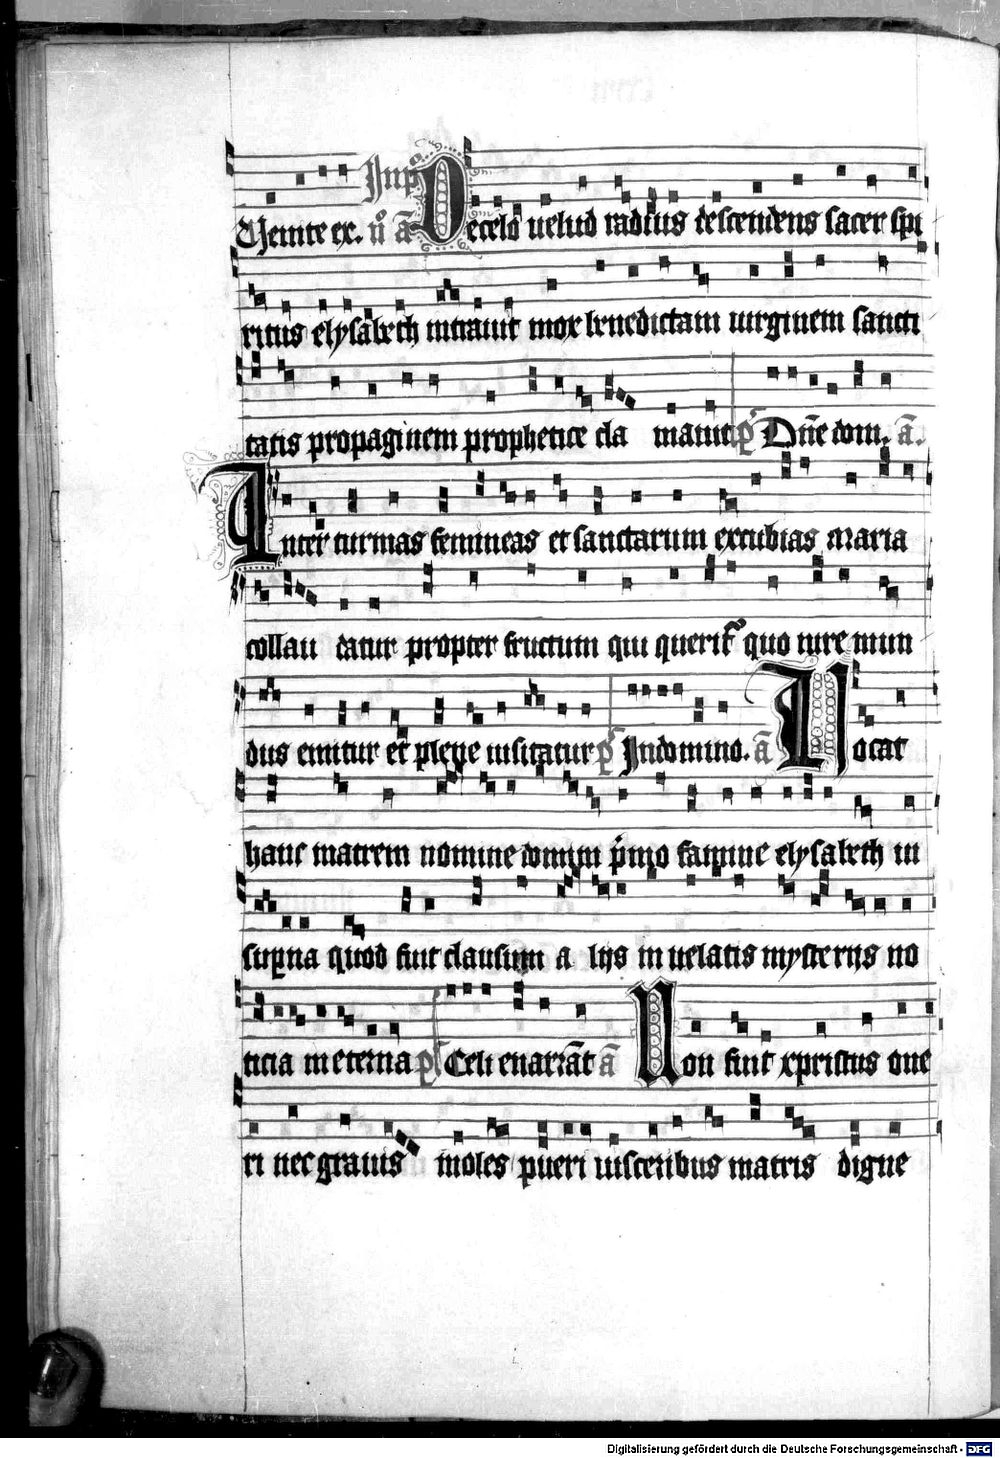 Jn p̄
Venite ex. i nͦ ā De celo uelud radius descendens sacer spi
ritus elysabeth intrauit mox benedictam uirginem sancti
tatis propaginem prophetice cla mauit p̄ Dn̄e dom. ā.
Inter turmas femineas et sanctarum excubias maria
collau datur propter fructum qui querit᷑ quo iure mun
dus emitur et plene uisitatur p̄ Jn domino. ā Uocat
hanc matrem nomine domini p̄mo famine elysabeth in
sup̄na quod fuit clausum a lijs in uelatis mysterijs no
ticia in eterna p̄ Celi enarrāt ā Non fuit xpristus one
ri nec grauis moles pueri uisceribus matris digne
Digitalisierung gefördert durch die Deutsche Forschungsgemeinschaft - DFG